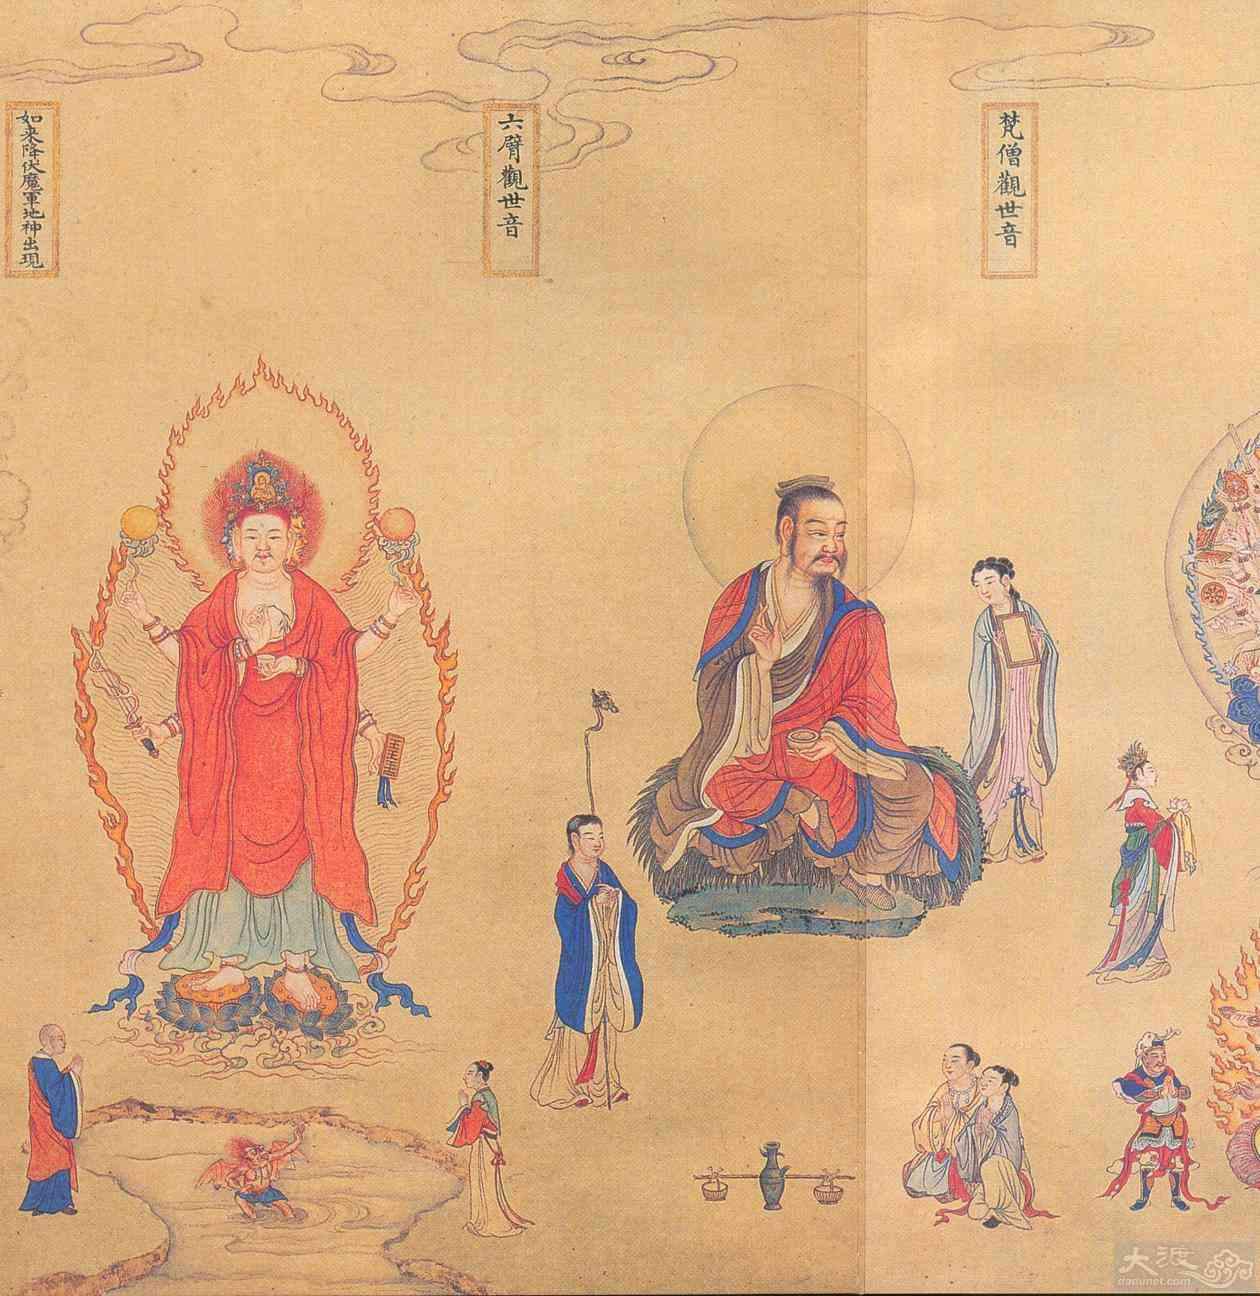 梵僧觀世音
六臂觀世音
如来降伏魔軍地神出現
大渡
dadunet.com